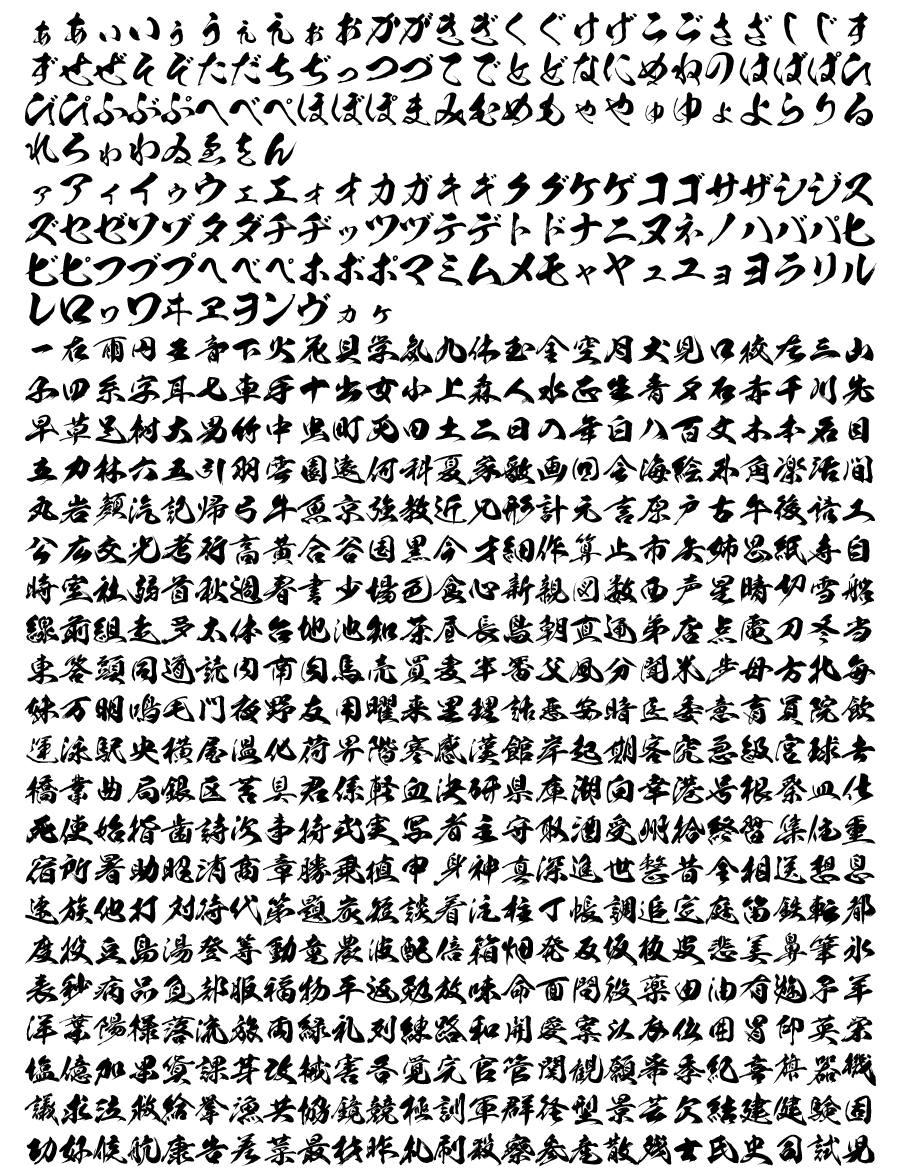 ぁあぃいぅうぇえぉおかがきぎくぐけげこごさざしじす
ずせぜそぞただちぢっつづてでとどなにぬねのはばぱひ
びぴふぶぷへべぺほぼぽまみむめもゃやゅゆょよらりる
れろゎわゐゑをん
ァアィイゥウェエォオカガキギクグケゲコゴサザシジス
ズセゼソゾタダチヂッツヅテデトドナニヌネノハバパヒ
ビピフブプヘベペホボポマミムメモャヤュユョヨラリル
レロヮワヰヱヲンヴヵヶ
一右雨円王音下火花貝学気九休玉金空月犬見口校左三山
子四糸字耳七車手十出女小上森人水正生青夕石赤千川先
早草足村大男竹中虫町天田土二日入年白八百文木本名目
立力林六五引羽雲園遠何科夏家歌画回会海絵外角楽活間
丸岩顔汽記帰弓牛魚京強教近兄形計元言原戸古午後語工
公広交光考行高黄合谷国黒今才細作算止市矢姉思紙寺自
時室社弱首秋週春書少場色食心新親図数西声星晴切雪船
線前組走多太体台地池知茶昼長鳥朝直通弟店点電刀冬当
東答頭同道読内南肉馬売買麦半番父風分聞米歩母方北毎
妹万明鳴毛門夜野友用曜来里理話悪安暗医委意育員院飲
運泳駅央横屋温化荷界階寒感漢館岸起期客究急級宮球去
橋業曲局銀区苦具君係軽血決研県庫湖向幸港号根祭皿仕
死使始指歯詩次事持式実写者主守取酒受州拾終習集住重
宿所署助昭消商章勝乗植申身神真深進世整昔全相送想息
速族他打対待代第題炭短談着注柱丁帳調追定庭笛鉄転都
度投豆島湯登等動童農波配倍箱畑発反坂板皮悲美鼻筆氷
表秒病品負部服福物平返勉放味命面問役薬由油有遊予羊
洋葉陽様落流旅両緑礼列練路和開愛案以衣位囲胃印英栄
塩億加果貨課芽改械害各覚完官管関観願希季紀喜旗器機
議求泣救給挙漁共協鏡競極訓軍群径型景芸欠結建健験固
功好候航康告差菜最材昨札刷殺察参産散残士氏史司試児